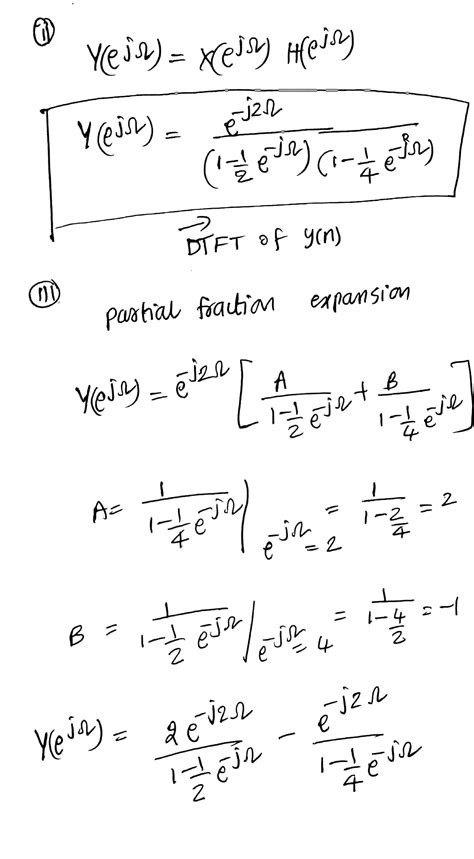 (ii)
Y(e^{jΩ}) = X(e^{jΩ}) H(e^{jΩ})
Y(e^{jΩ}) = e^{-j2Ω} / (1-1/2 e^{-jΩ}) (1-1/4 e^{-jΩ})
→
DTFT of y(n)
(iii)
partial fraction expansion
Y(e^{jΩ}) = e^{-j2Ω} [ A / 1-1/2 e^{-jΩ} + B / 1-1/4 e^{-jΩ} ]
A = 1 / 1-1/4 e^{-jΩ} | e^{-jΩ} = 2 = 1 / 1-2/4 = 2
B = 1 / 1-1/2 e^{-jΩ} | e^{-jΩ} = 4 = 1 / 1-4/2 = -1
Y(e^{jΩ}) = 2 e^{-j2Ω} / 1-1/2 e^{-jΩ} - e^{-j2Ω} / 1-1/4 e^{-jΩ}